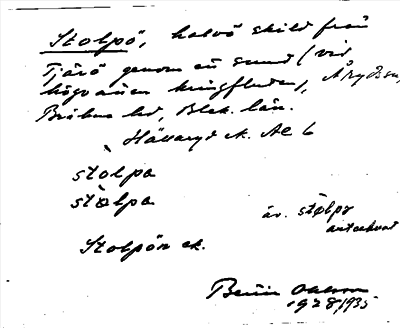 Stolpö, halvö skild från
Tjärö genom ett sund (vid
högvatten kringfluten), Åryds sn,
Bräkne hd, Blek. län.
Hällaryd sn. AE 6
stolpa
stålpa
äv. stålpö
antecknat
Stolpön ek.
1928/1935